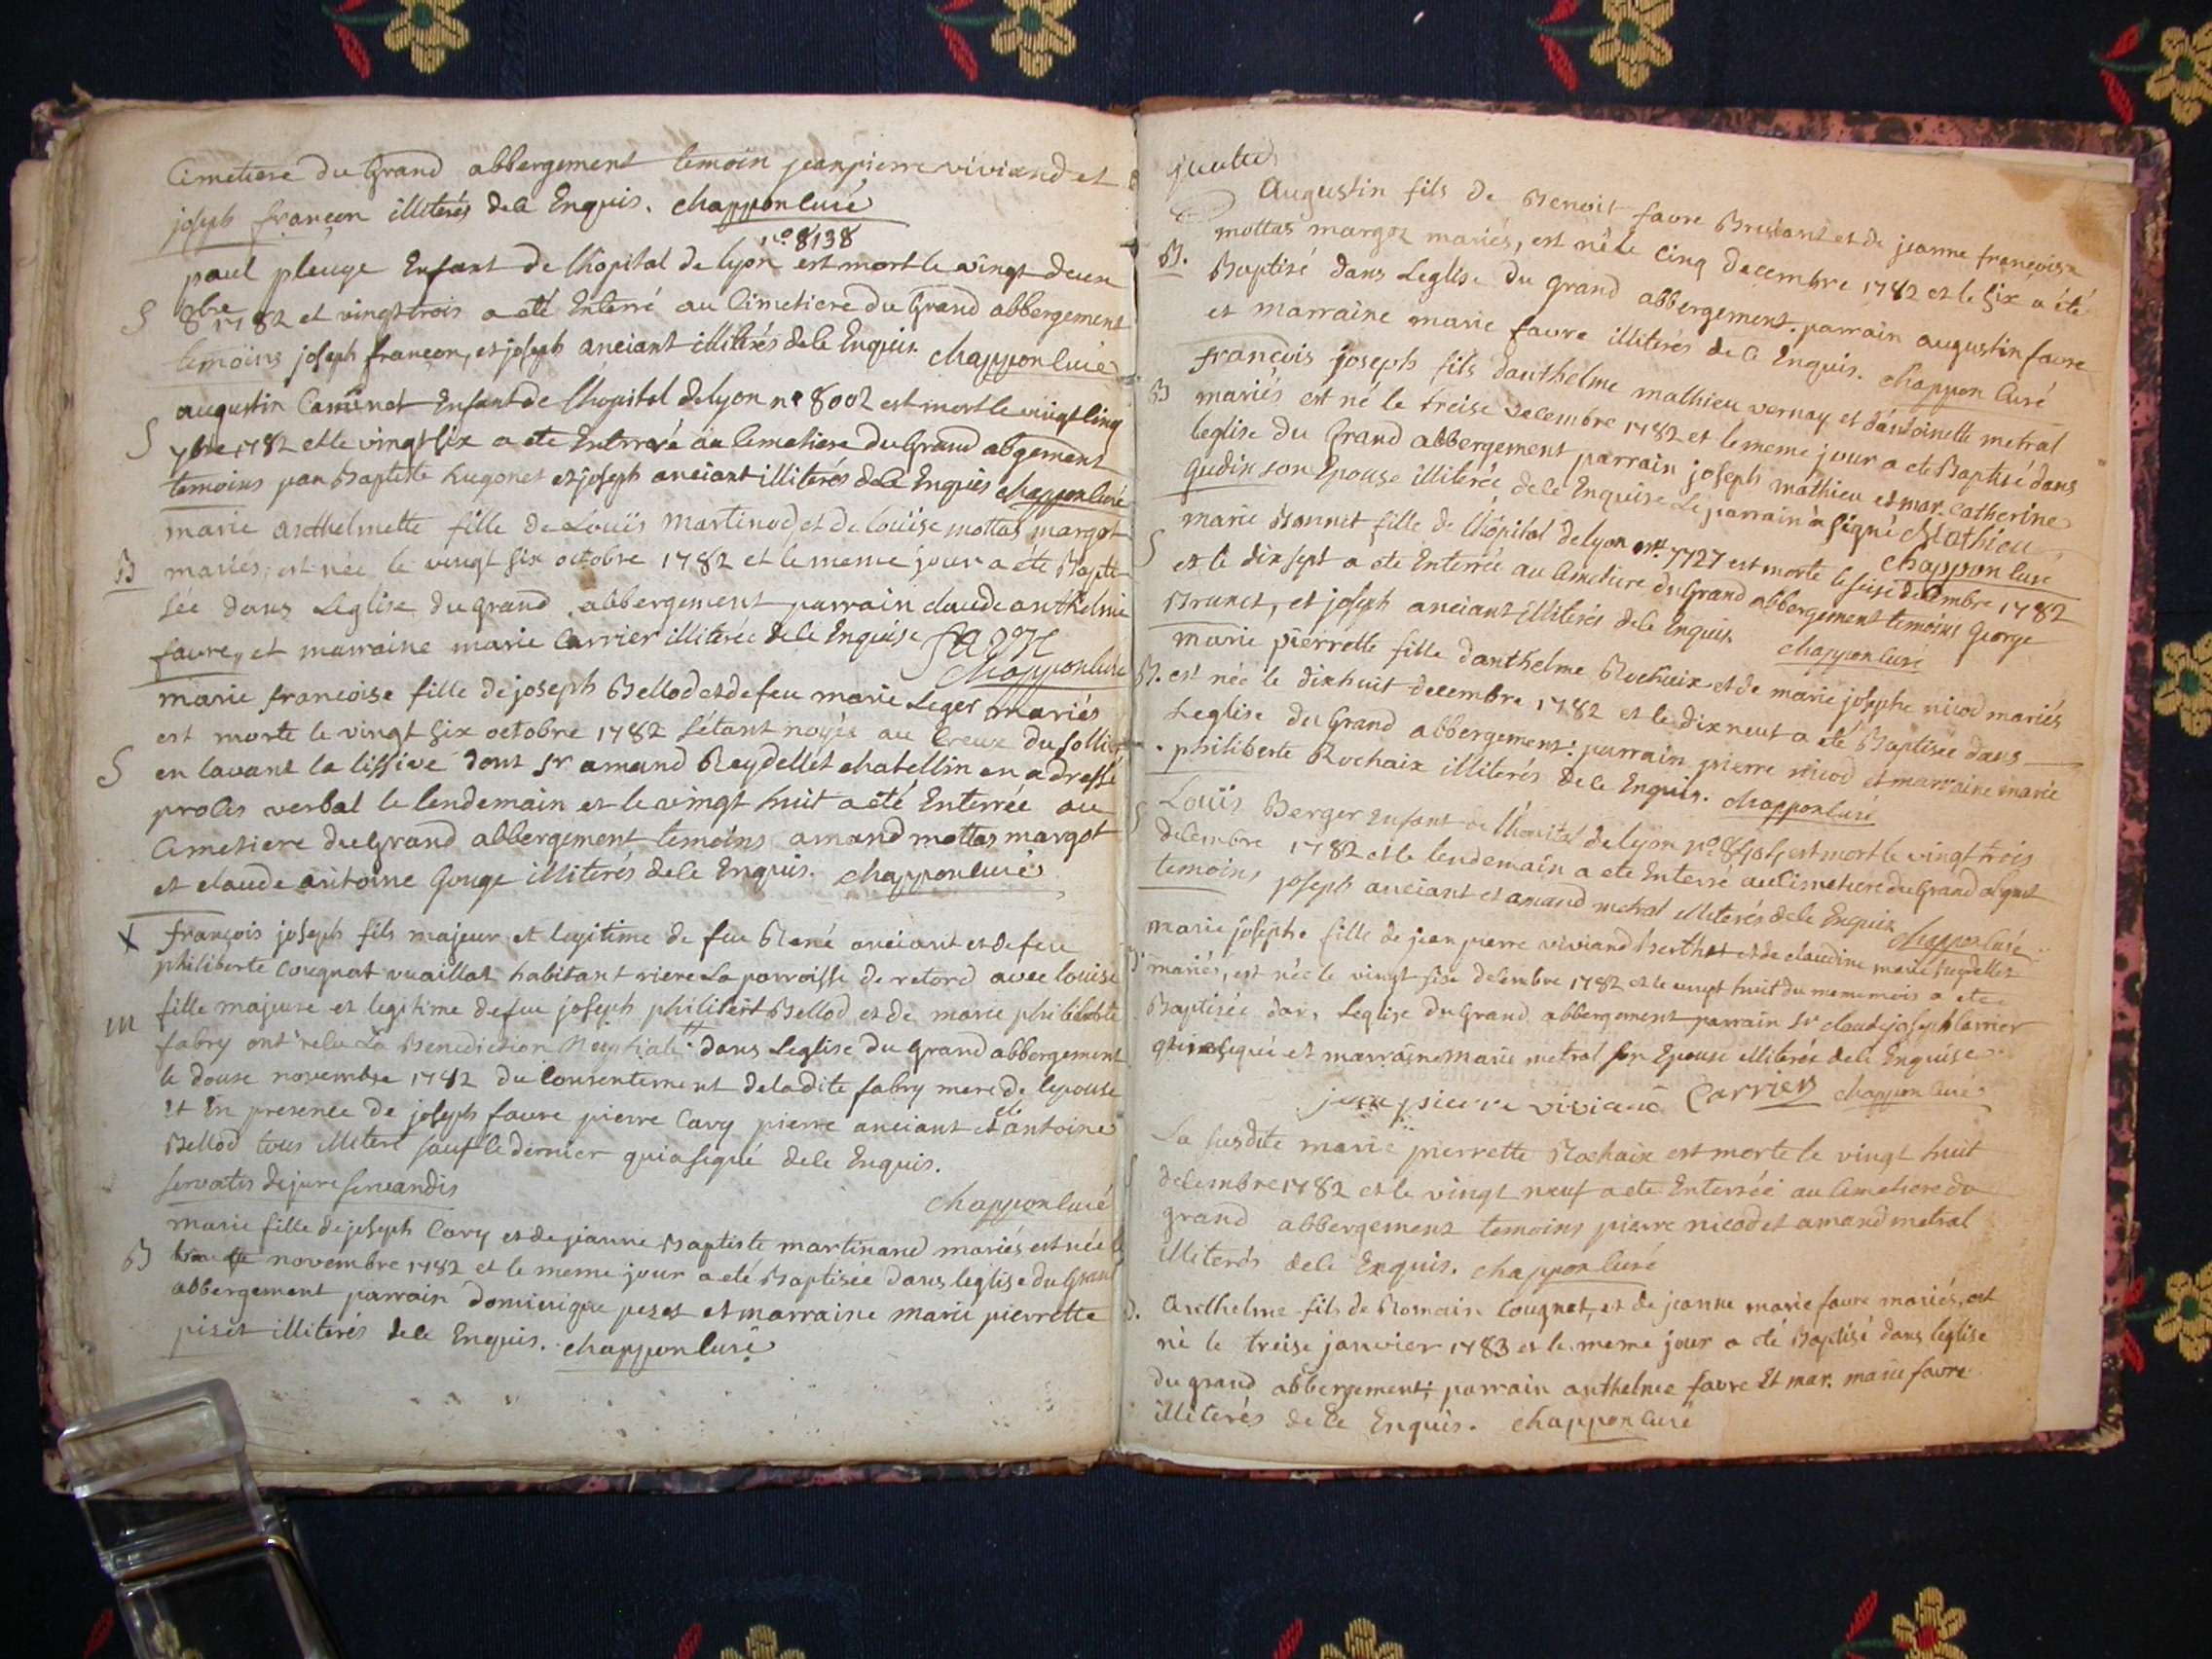 Cimetiere du Grand abbergement temoin jeanpierre viviand et
joseph françon illiterés dela Enquis. chappon curé
n.o 8138
paul pleuge Enfant de lhopital de lyon est mort le vingt deux
8bre 1782 et vingt trois a eté Enterré au Cimetiere du Grand abbergement
temoins joseph françon, et joseph anciant illiterés dela Enquis. chappon curé
augustin Enfant de lhopital de lyon no 8002 est mort le vingt cinq
1782 et le vingt six a ete Enterré au Cimetiere du Grand abgement
temoins jean Baptiste hugonet et joseph anciant illiterés dela Enquis chappon curé
marie anthelmette fille de Louïs martinod et de louïse mottas margot
B mariés, est née le vingt six octobre 1782 et le meme jour a été Bapti-
sée dans Leglise du grand abbergement parrain claude anthelme
favre, et marraine marie Carrier illiterée dela Enquise
chappon curé
marie françoise fille de joseph Bellod et de feu marie Leger mariés
est morte le vingt six octobre 1782 sétant noyée au Creux du sollier
S en lavant la lissive dont Sr amand Reydellet chatellin en a dressé
procès verbal le lendemain et le vingt huit a été Enterrée au
Cimetiere du grand abbergement temoins amand mottas margot
et claude antoine Gouge illiterés dela Enquis. chappon curé
X françois joseph fils majeur et legitime de feu René anciant et de feu
philiberte Cougnat vuaillat habitant riere La parroisse de retord avec louise
m fille majeure et legitime de feu joseph philibert Bellod et de marie philiberte
fabry ont recu La Benediction Nuptiale dans Leglise du Grand abbergement
le douse novembre 1782 du Consentement deladite fabry mere de lepouse
et En presence de joseph favre pierre Cary pierre anciant et antoine
Bellod tous illiteré sauf le dernier qui a signé dela Enquis.
servatis de jure servandis
chappon curé
marie fille de joseph Cary et de jeanne Baptiste martinand mariés est née le
B novembre 1782 et le meme jour a eté Baptisée dans leglise du Grand
abbergement parrain dominique peset et marraine marie pierrette
piset illiterés dela Enquis. chappon curé
Augustin fils de Benoit favre Brusiant et de jeanne françoise
mottas margot mariés, est né le cinq decembre 1782 et le six a été
B. Baptisé dans Leglise du Grand abbergement. parrain augustin favre
et marraine marie favre illiterés dela Enquis. chappon Curé
françois joseph fils danthelme mathieu vernay et dantoinette metral
B mariés est né le treise decembre 1782 et le meme jour a ete Baptisé dans
leglise du Grand abbergement parrain joseph mathieu et mar. Catherine
Gudin son Epouse illiterée dela Enquise Le parrain a signé Mathieu
chappon curé
marie Bonnet fille de lhôpital de lyon no. 7727 est morte le seise decembre 1782
S et le dix sept a ete Enterrée au Cimetiere du Grand abbergement temoins George
Brunet, et joseph anciant illiterés dela Enquis chappon curé
marie pierrette fille danthelme Rochaix et de marie josephe nicod mariés
B. est née le dixhuit decembre 1782 et le dix neuf a été Baptisée dans
Leglise du Grand abbergement: parrain pierre nicod et marraine marie
philiberte Rochaix illiterés dela Enquis. chappon curé
Louïs Berger Enfant de lhopital de lyon no est mort le vingt trois
decembre 1782 et le lendemain a ete Enterré au Cimetiere du Grand abgmt
temoins joseph anciant et amand metral illiterés dela Enquis chappon curé
marie josephe fille de jean pierre viviand Berthet et de claudine marie
mariés, est née le vingt decembre 1782 et le vingt huit du meme mois a ete
Baptisée dans Leglise du Grand abbergement parrain Sr claude joseph Carrier
qui a signé et marraine marie metral son Epouse illiterée dela Enquise
jean pierre viviand Carrier chappon curé
La susdite marie pierrette Rochaix est morte le vingt huit
decembre 1782 et le vingt neuf a ete Enterrée au Cimetiere du
grand abbergement temoins pierre nicod et amand metral
illiterés dela Enquis. chappon curé
B. Anthelme fils de Romain Cougnat, et de jeanne marie favre mariés, est
né le treise janvier 1783 et le meme jour a eté Baptisé dans leglise
du grand abbergement; parrain anthelme favre Et mar. marie favre
illiterés dela Enquis. chappon curé